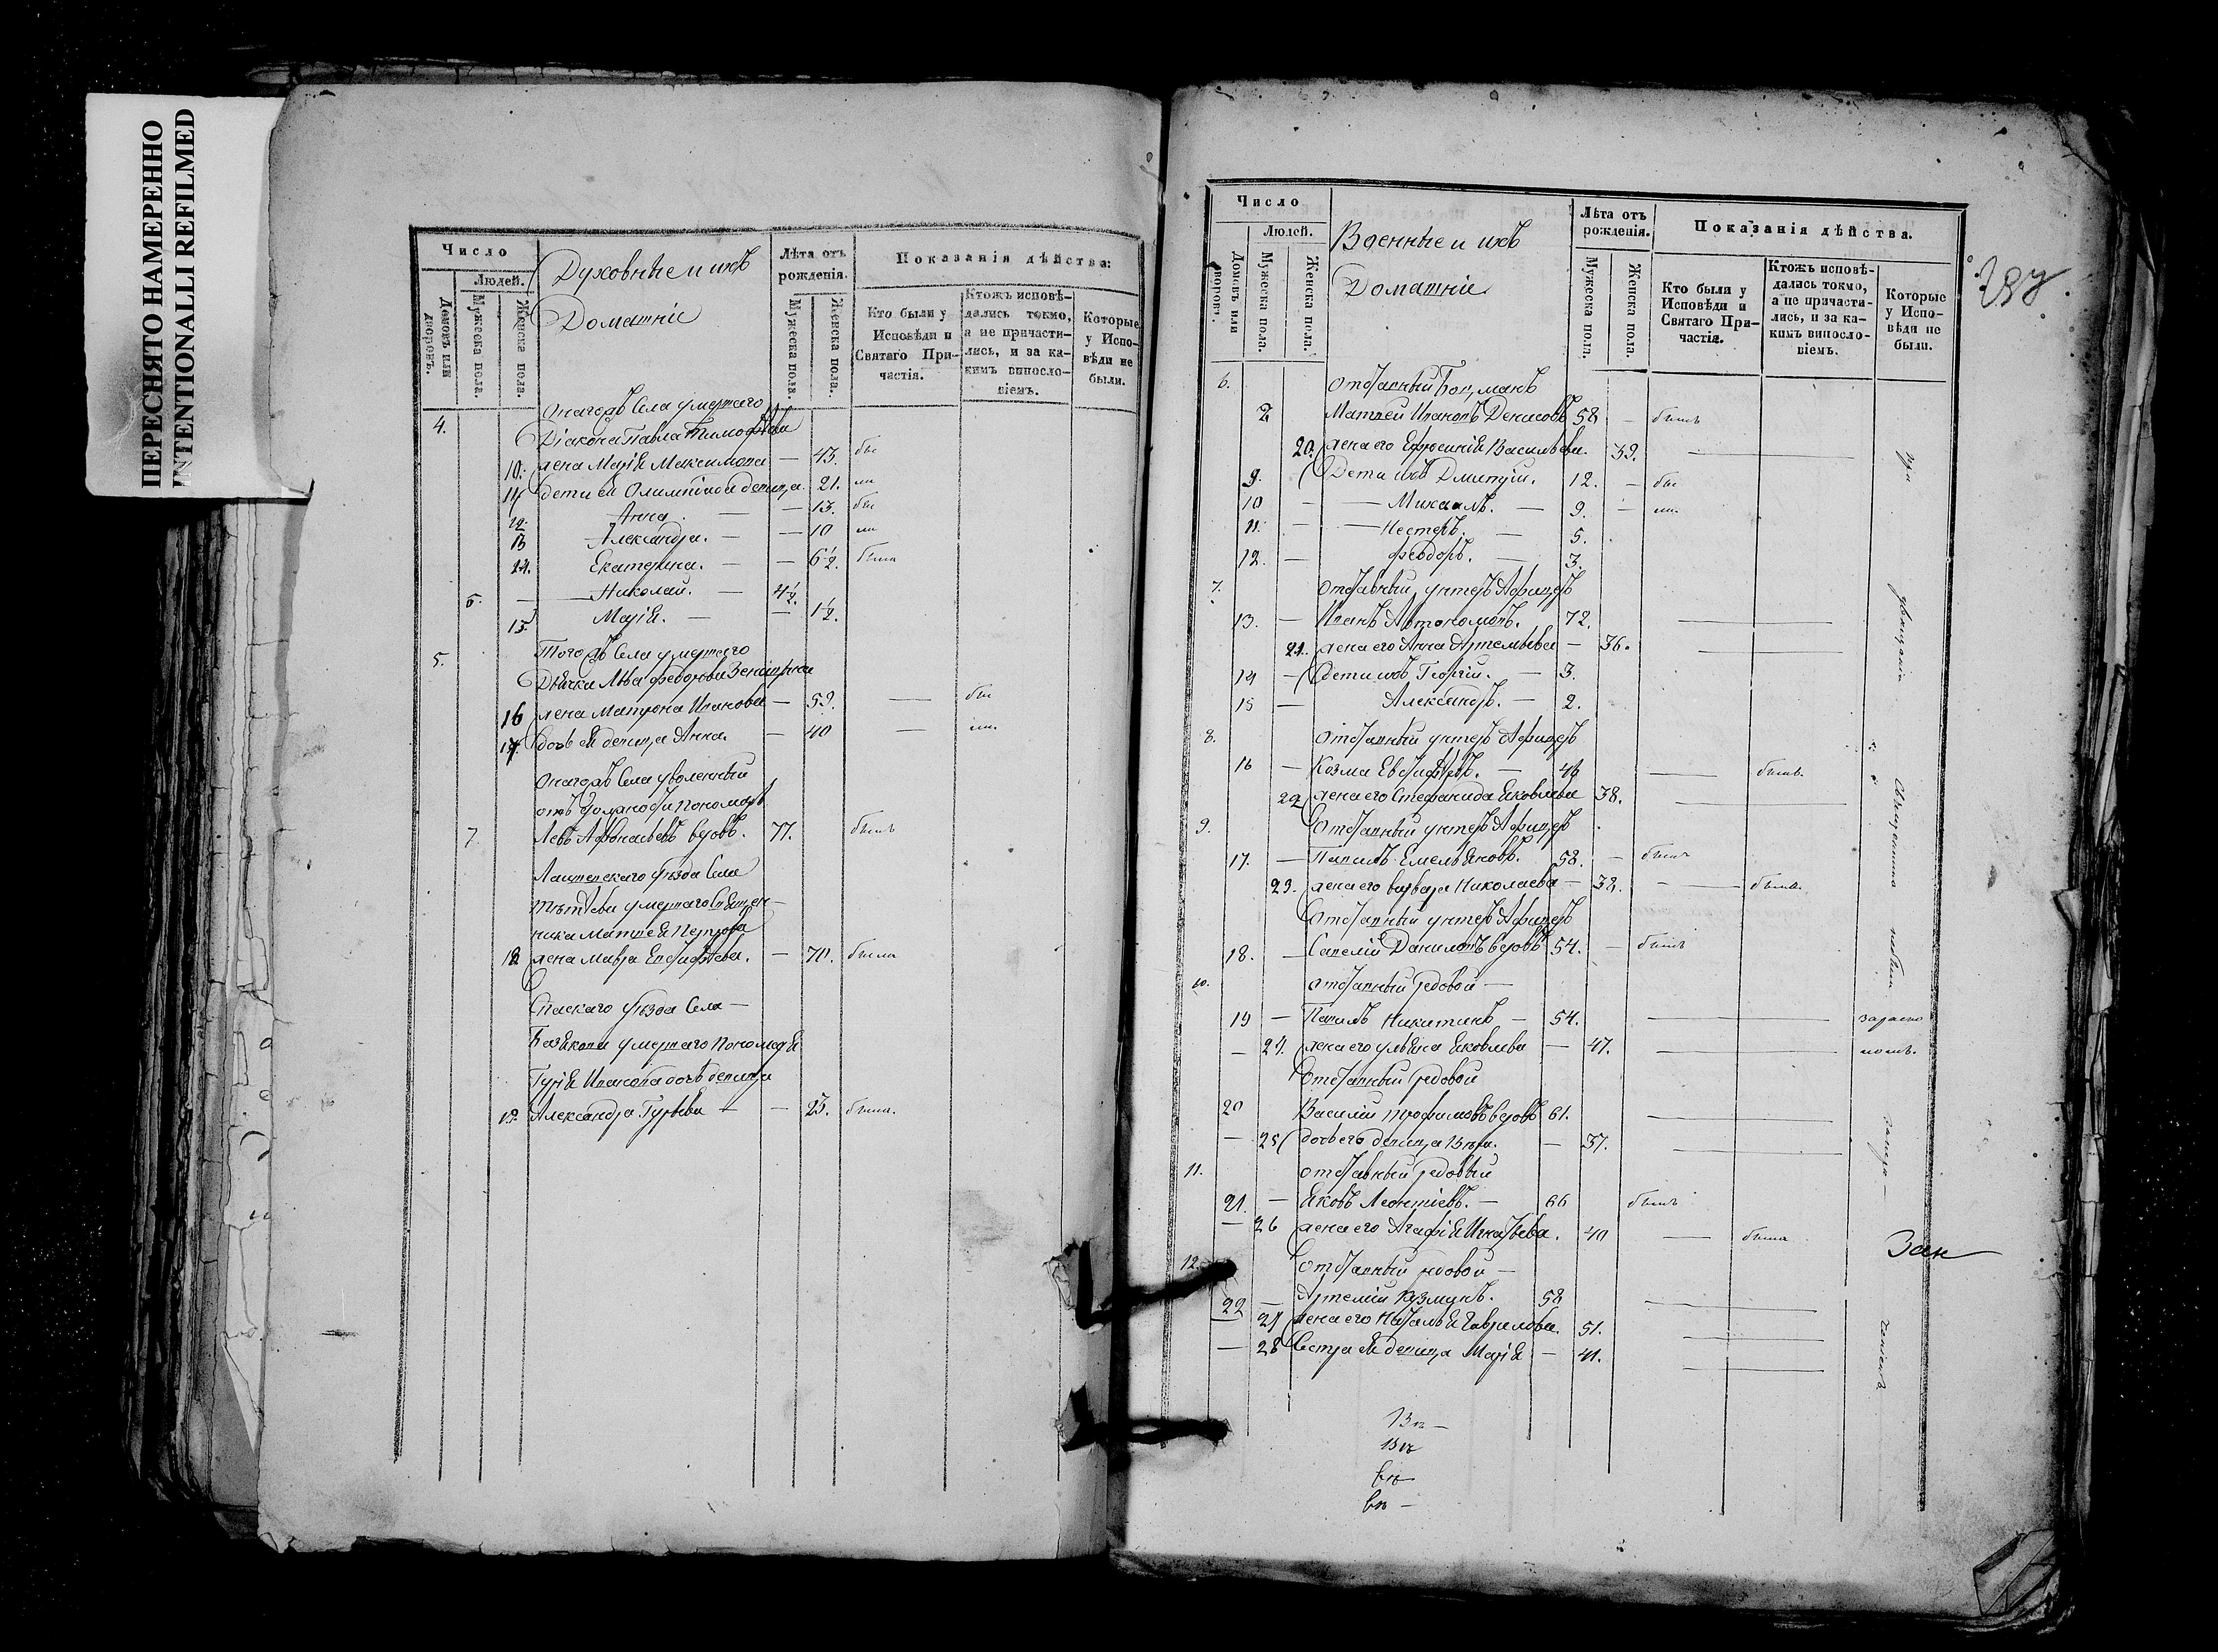 ПЕРЕСНЯТО НАМЕРЕННО
INTENTIONALLI REFILMED
Число
Людей.
Домовъ или дворовъ.
Мужеска пола.
Женска пола.
Духовные и ихъ
Домашніе
Лѣта отъ рожденія.
Мужеска пола.
Женска пола.
Показанія дѣйства:
Кто были у Исповѣди и Святаго Причастія.
Ктожъ исповѣдались токмо, а не причастились, и за какимъ винословіемъ.
Которые у Исповѣди не были.
4. Онагожъ Села умершаго
Діакона Павла Тимофѣева
10. жена Марія Максимова — 43.
11 дети ея Олимпіада девица 21.
12. Анна — 13.
13 Александра. — 10
14. Екатерина. — 6 1/2. была
6. Николай. — 4 1/2.
15. Марія. — 1 1/2.
5. Тогожъ Села умершего
Дьячка Льва Федорова
16 жена Матрона Иванова — 59.
17. дочь ея девица Анна. — 40
Онагожъ Села уволенный
отъ должности Пономарь
7. Левъ Афонасьевъ вдовъ. 77. былъ
уѣзда Села
умершаго Священ-
ника Матвея Петрова
18 жена Мавра Евстафіева. — 70. была
Спаскаго уѣзда Села —
умершаго Пономаря
Гурія Иванова дочь девица
19. Александра Гурьева — 23. была.
297.
Число
Людей.
Домовъ или дворовъ.
Мужеска пола.
Женска пола.
Военные и ихъ
Домашніе
Лѣта отъ рожденія.
Мужеска пола.
Женска пола.
Показанія дѣйства.
Кто были у Исповѣди и Святаго Причастія.
Ктожъ исповѣдались токмо, а не причастились, и за какимъ винословіемъ.
Которые у Исповѣди не были.
6. Отставный Боцманъ
Матвей Ивановъ Денисовъ 58 — былъ
20. жена его Евгенія Васильева. 39.
9. Дети ихъ Дмитрій. 12. —
10 — Михаилъ. — 9. —
11. — Несторъ. — 5.
12. — Феодоръ. — 3.
7. Отставный унтеръ Афицеръ
13. — Иванъ Автономовъ. 72.
21. жена его Анна Артемьева — 36.
14 — Дети ихъ Георгій. — 3.
15 — Александръ. — 2.
8. Отставный унтеръ Афицеръ
16 — Козма Евстафіевъ. — 46 былъ.
22 жена его Стефанида Яковлева 38.
9. Отставный унтеръ Афицеръ
17. — Павилъ Емельяновъ. 58. — былъ
23. жена его Варвара Николаева — 38. — была.
Отставный унтеръ Афицеръ
18. — Савелій Даниловъ вдовъ 54. — былъ
10. Отставный редовой —
19 — Павилъ Никитинъ — 54.
— 24. жена его Ульяна Яковлева — 47.
Отставный редовой
20 Василій Трофимовъ вдовъ 61.
— 25 дочь его девица Вѣра. — 37.
11. Отставный редовый
21. — Яковъ Леонтіевъ. — 66 былъ
— 26 жена его Агафія Игнатьева. 40 была
12. Отставный редовой —
22 — Артемій Кузминъ. 58
— 27 жена его Наталья Гаврилова. 51.
— 28 Сестра ея девица Марія — 41.